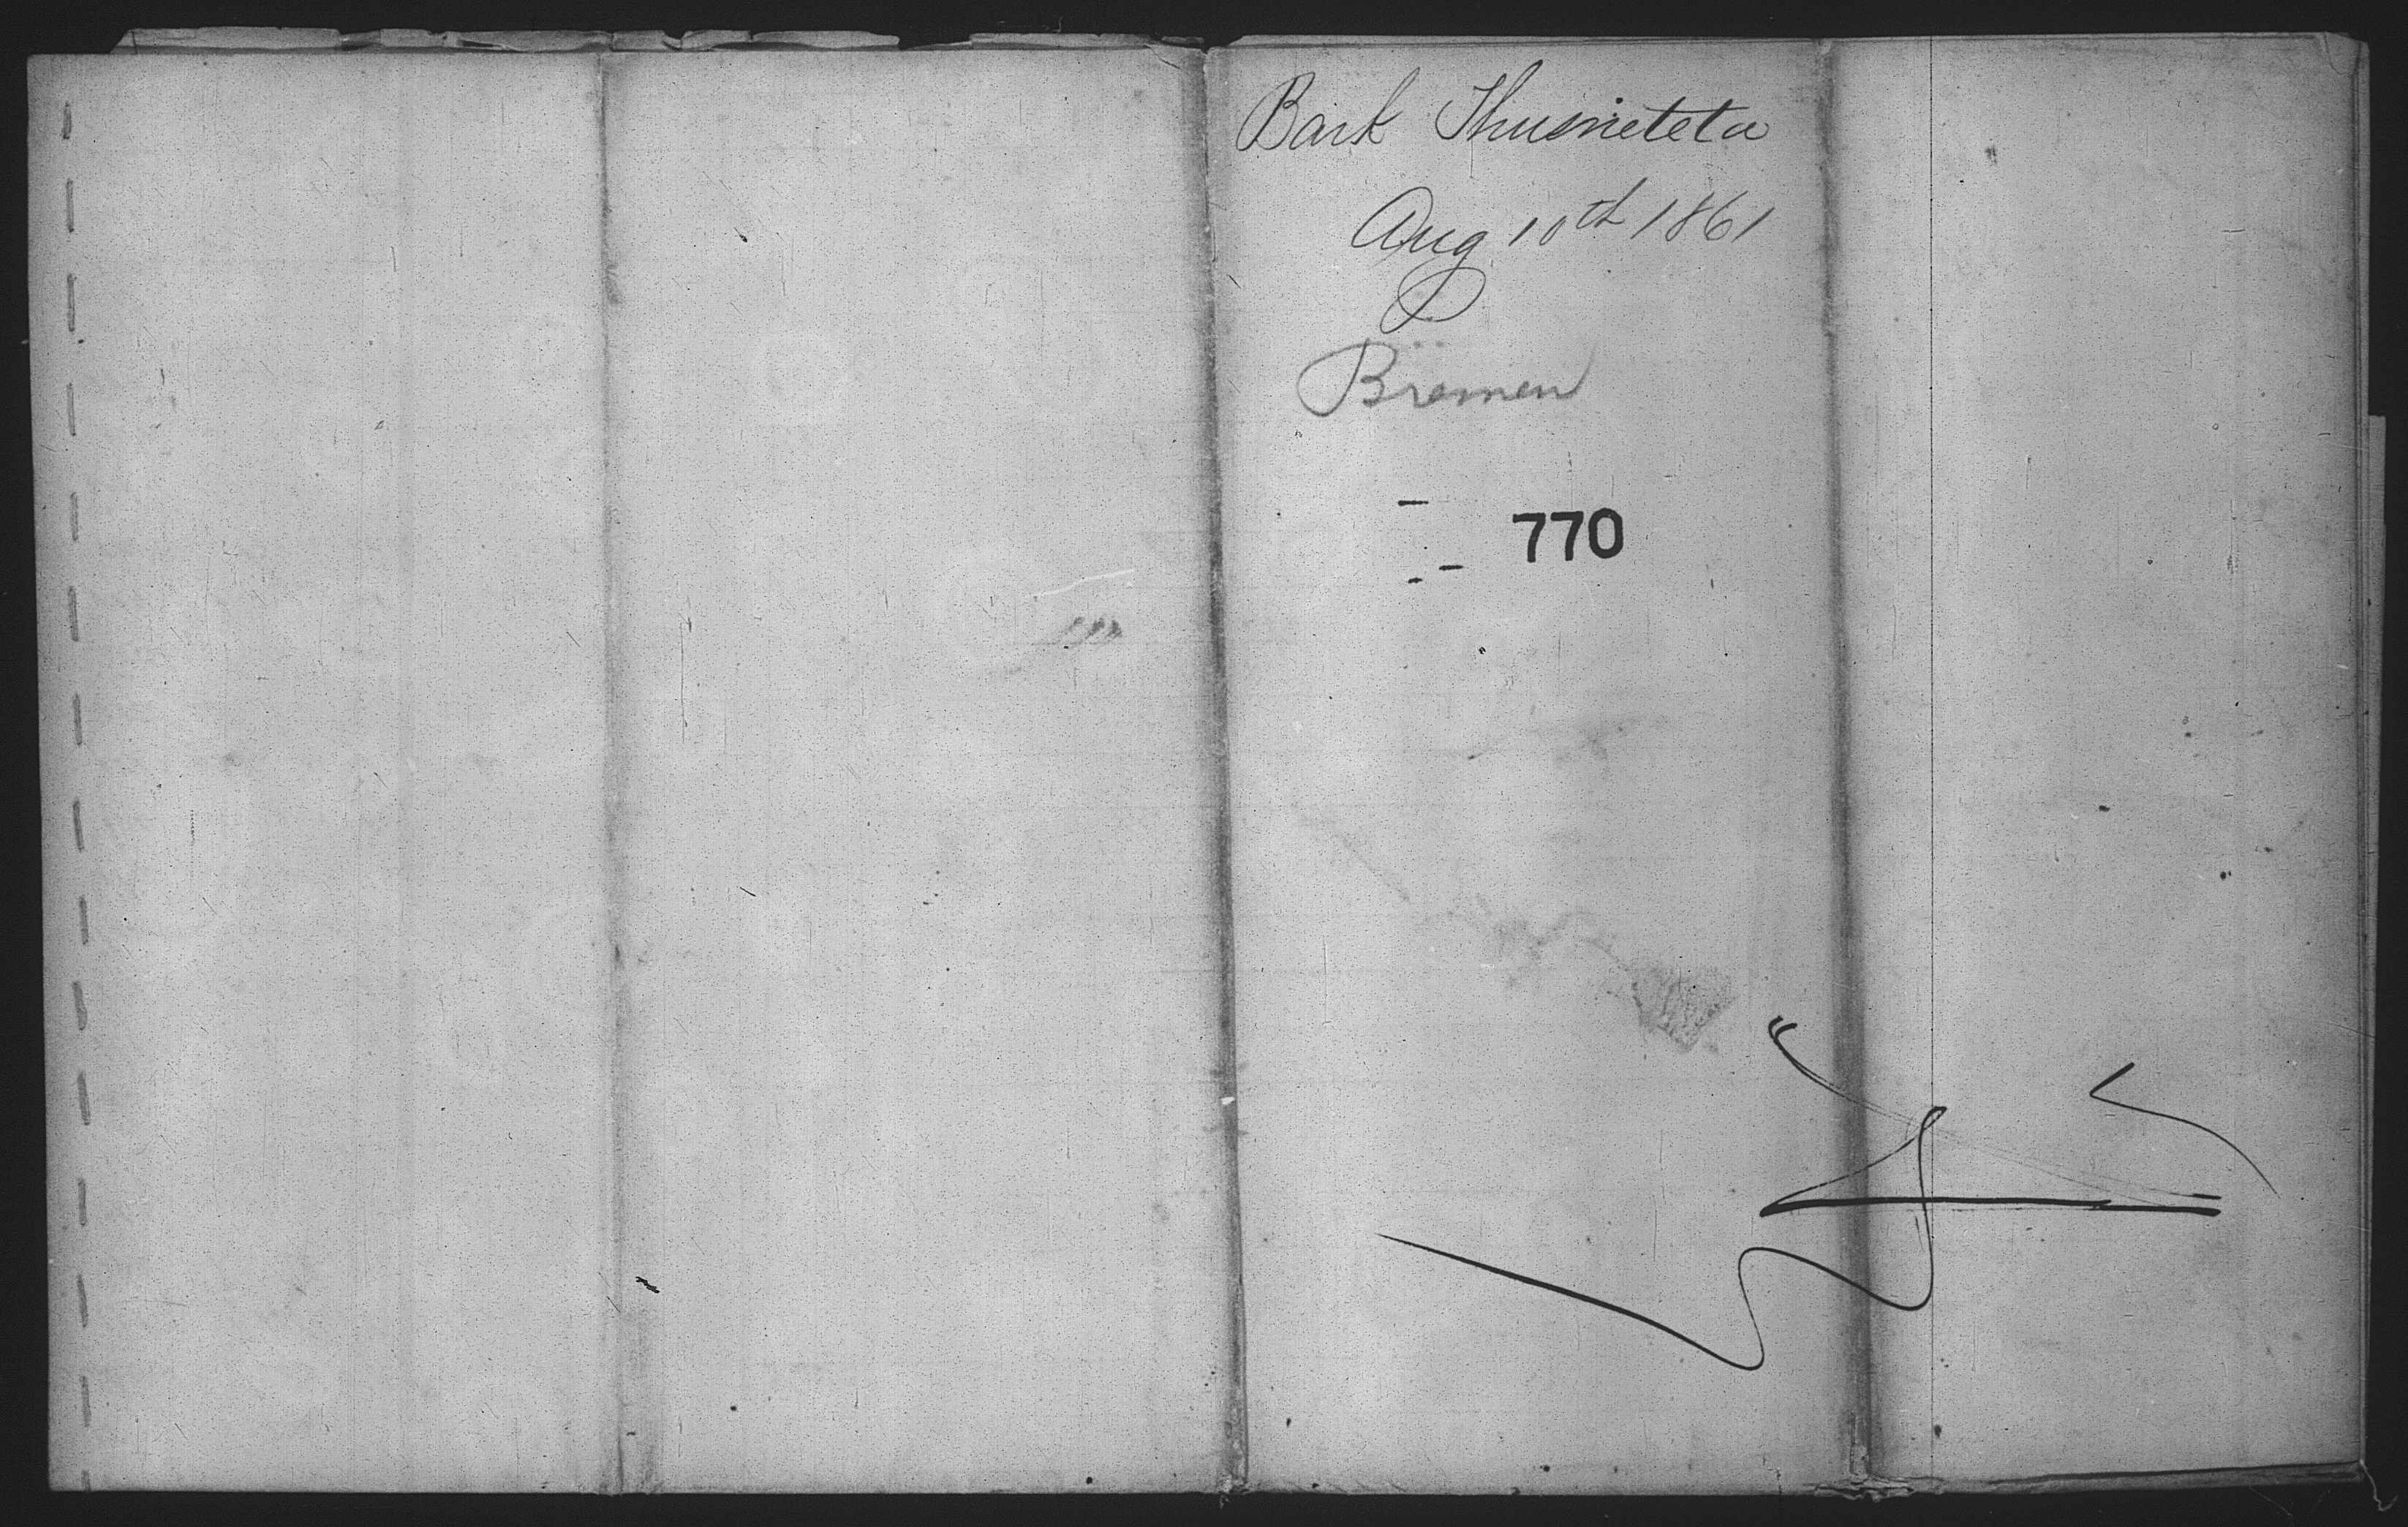 Bark Thusneteta
Aug 10th 1861
Bremen
770